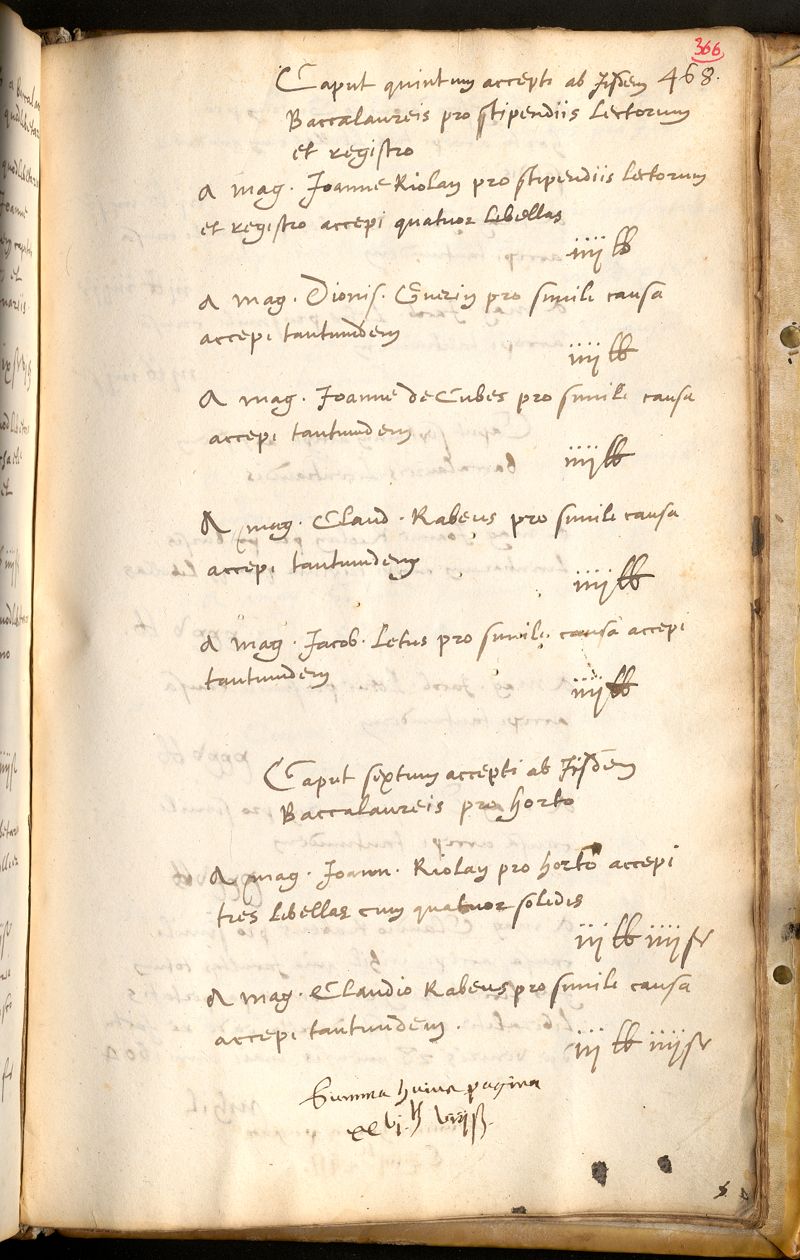 366
Caput quintum accepti ab Jisdem 468.
Baccalaureis pro stipendiis Lectorum
et registro
A mag. Joanne Riolan pro stipendiis lectorum
et registro accepi quatuor libellas
iiij lb
A mag. Dionis. Guerin pro simili causa
accepi tantundem
iiij lb
A mag. Joanne de Cubes pro simili causa
accepi tantundem
iiij lb
A mag. Claud. Rabeus pro simili causa
accepi tantundem
iiij lb
A mag. Jacob. Letus pro simili causa accepi
tantundem
iiij lb
Caput sextum accepti ab Jisdem
Baccalaureis pro horto
A mag. Joann. Riolan pro horto accepi
tres libellas cum quatuor solidis
iij lb iiij s
A mag. Claudio Rabeus pro simili causa
accepi tantundem.
iij lb iiij s
Summa huius pagina
xxvj lb viij s.